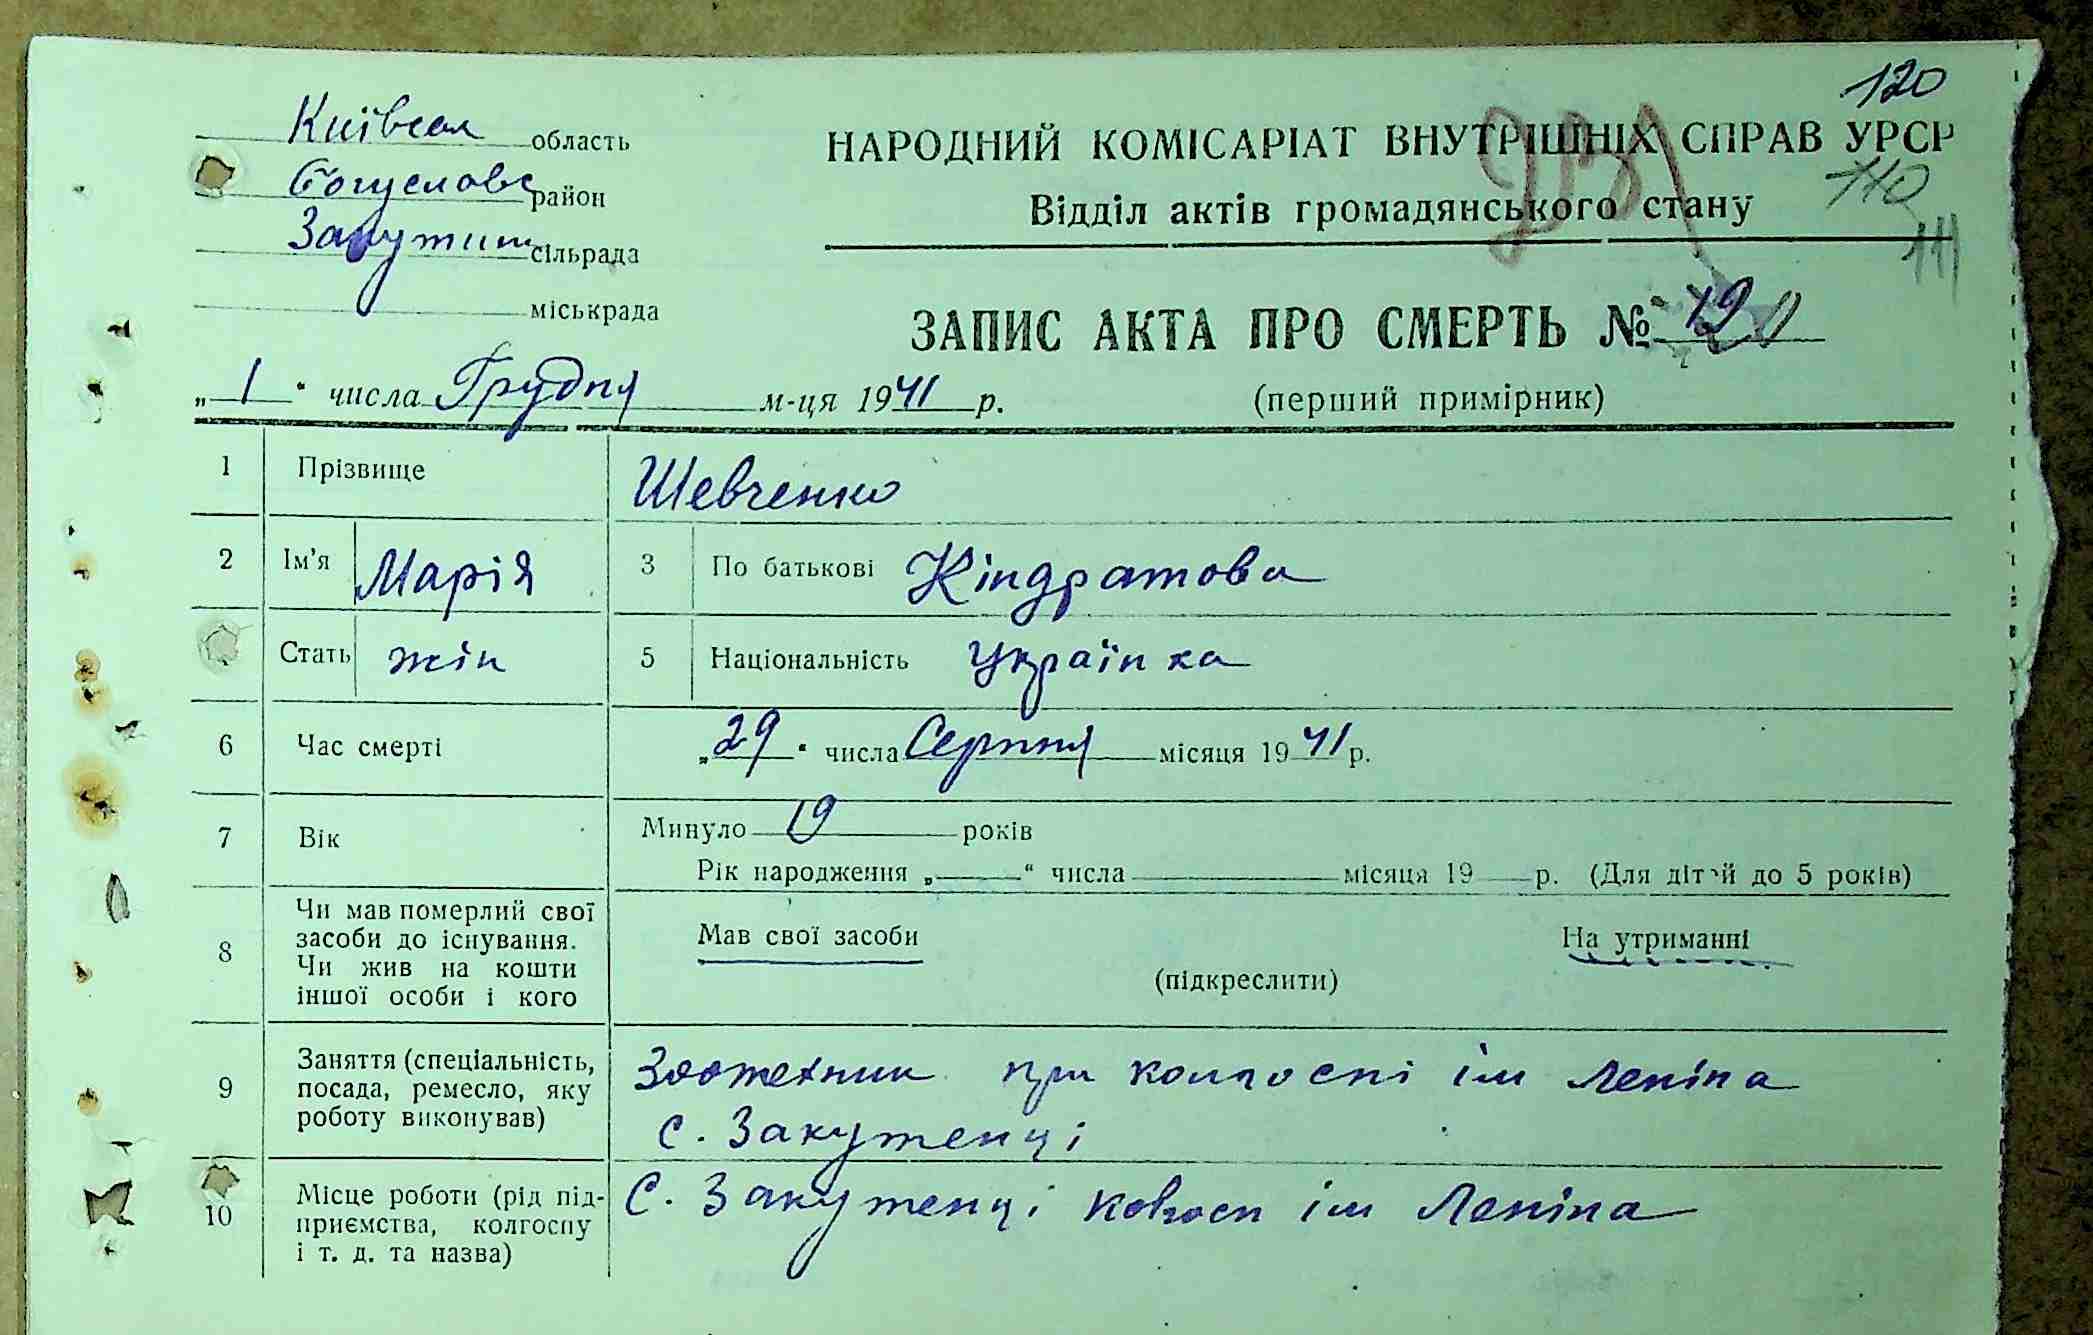 120
Київська область
НАРОДНИЙ КОМІСАРІАТ ВНУТРІШНІХ СПРАВ УРСР
Богуславс район
110
Відділ актів громадянського стану
111
Закутин сільрада
міськрада
ЗАПИС АКТА ПРО СМЕРТЬ №
„1“ числа Грудня м-ця 1941 р.
(перший примірник)
1 Прізвище Шевченко
2 Ім'я Марія 3 По батькові Кіндратова
Стать жін 5 Національність Українка
6 Час смерті „29“ числа Серпня місяця 1941 р.
7 Вік Минуло 19 років
Рік народження „—“ числа — місяця 19 — р. (Для дітей до 5 років)
8 Чи мав померлий свої
засоби до існування.
Чи жив на кошти
іншої особи і кого
Мав свої засоби На утриманні
(підкреслити)
9 Заняття (спеціальність,
посада, ремесло, яку
роботу виконував)
Зоотехник при колгоспі ім Леніна
с. Закутенці
10 Місце роботи (рід під-
приємства, колгоспу
і т. д. та назва)
С. Закутенці ім Леніна